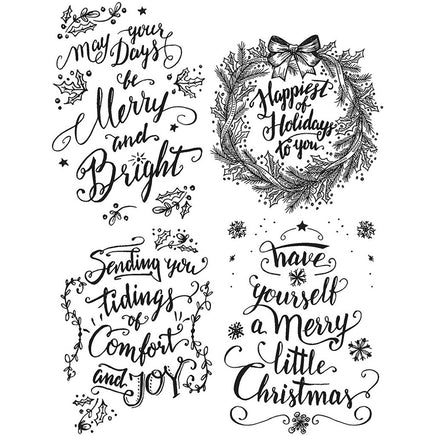 May your
Days
be
Merry
and
Bright
Happiest
of
Holidays
to you
Sending you
tidings
of
Comfort
and JOY
have
yourself
a Merry
little
Christmas